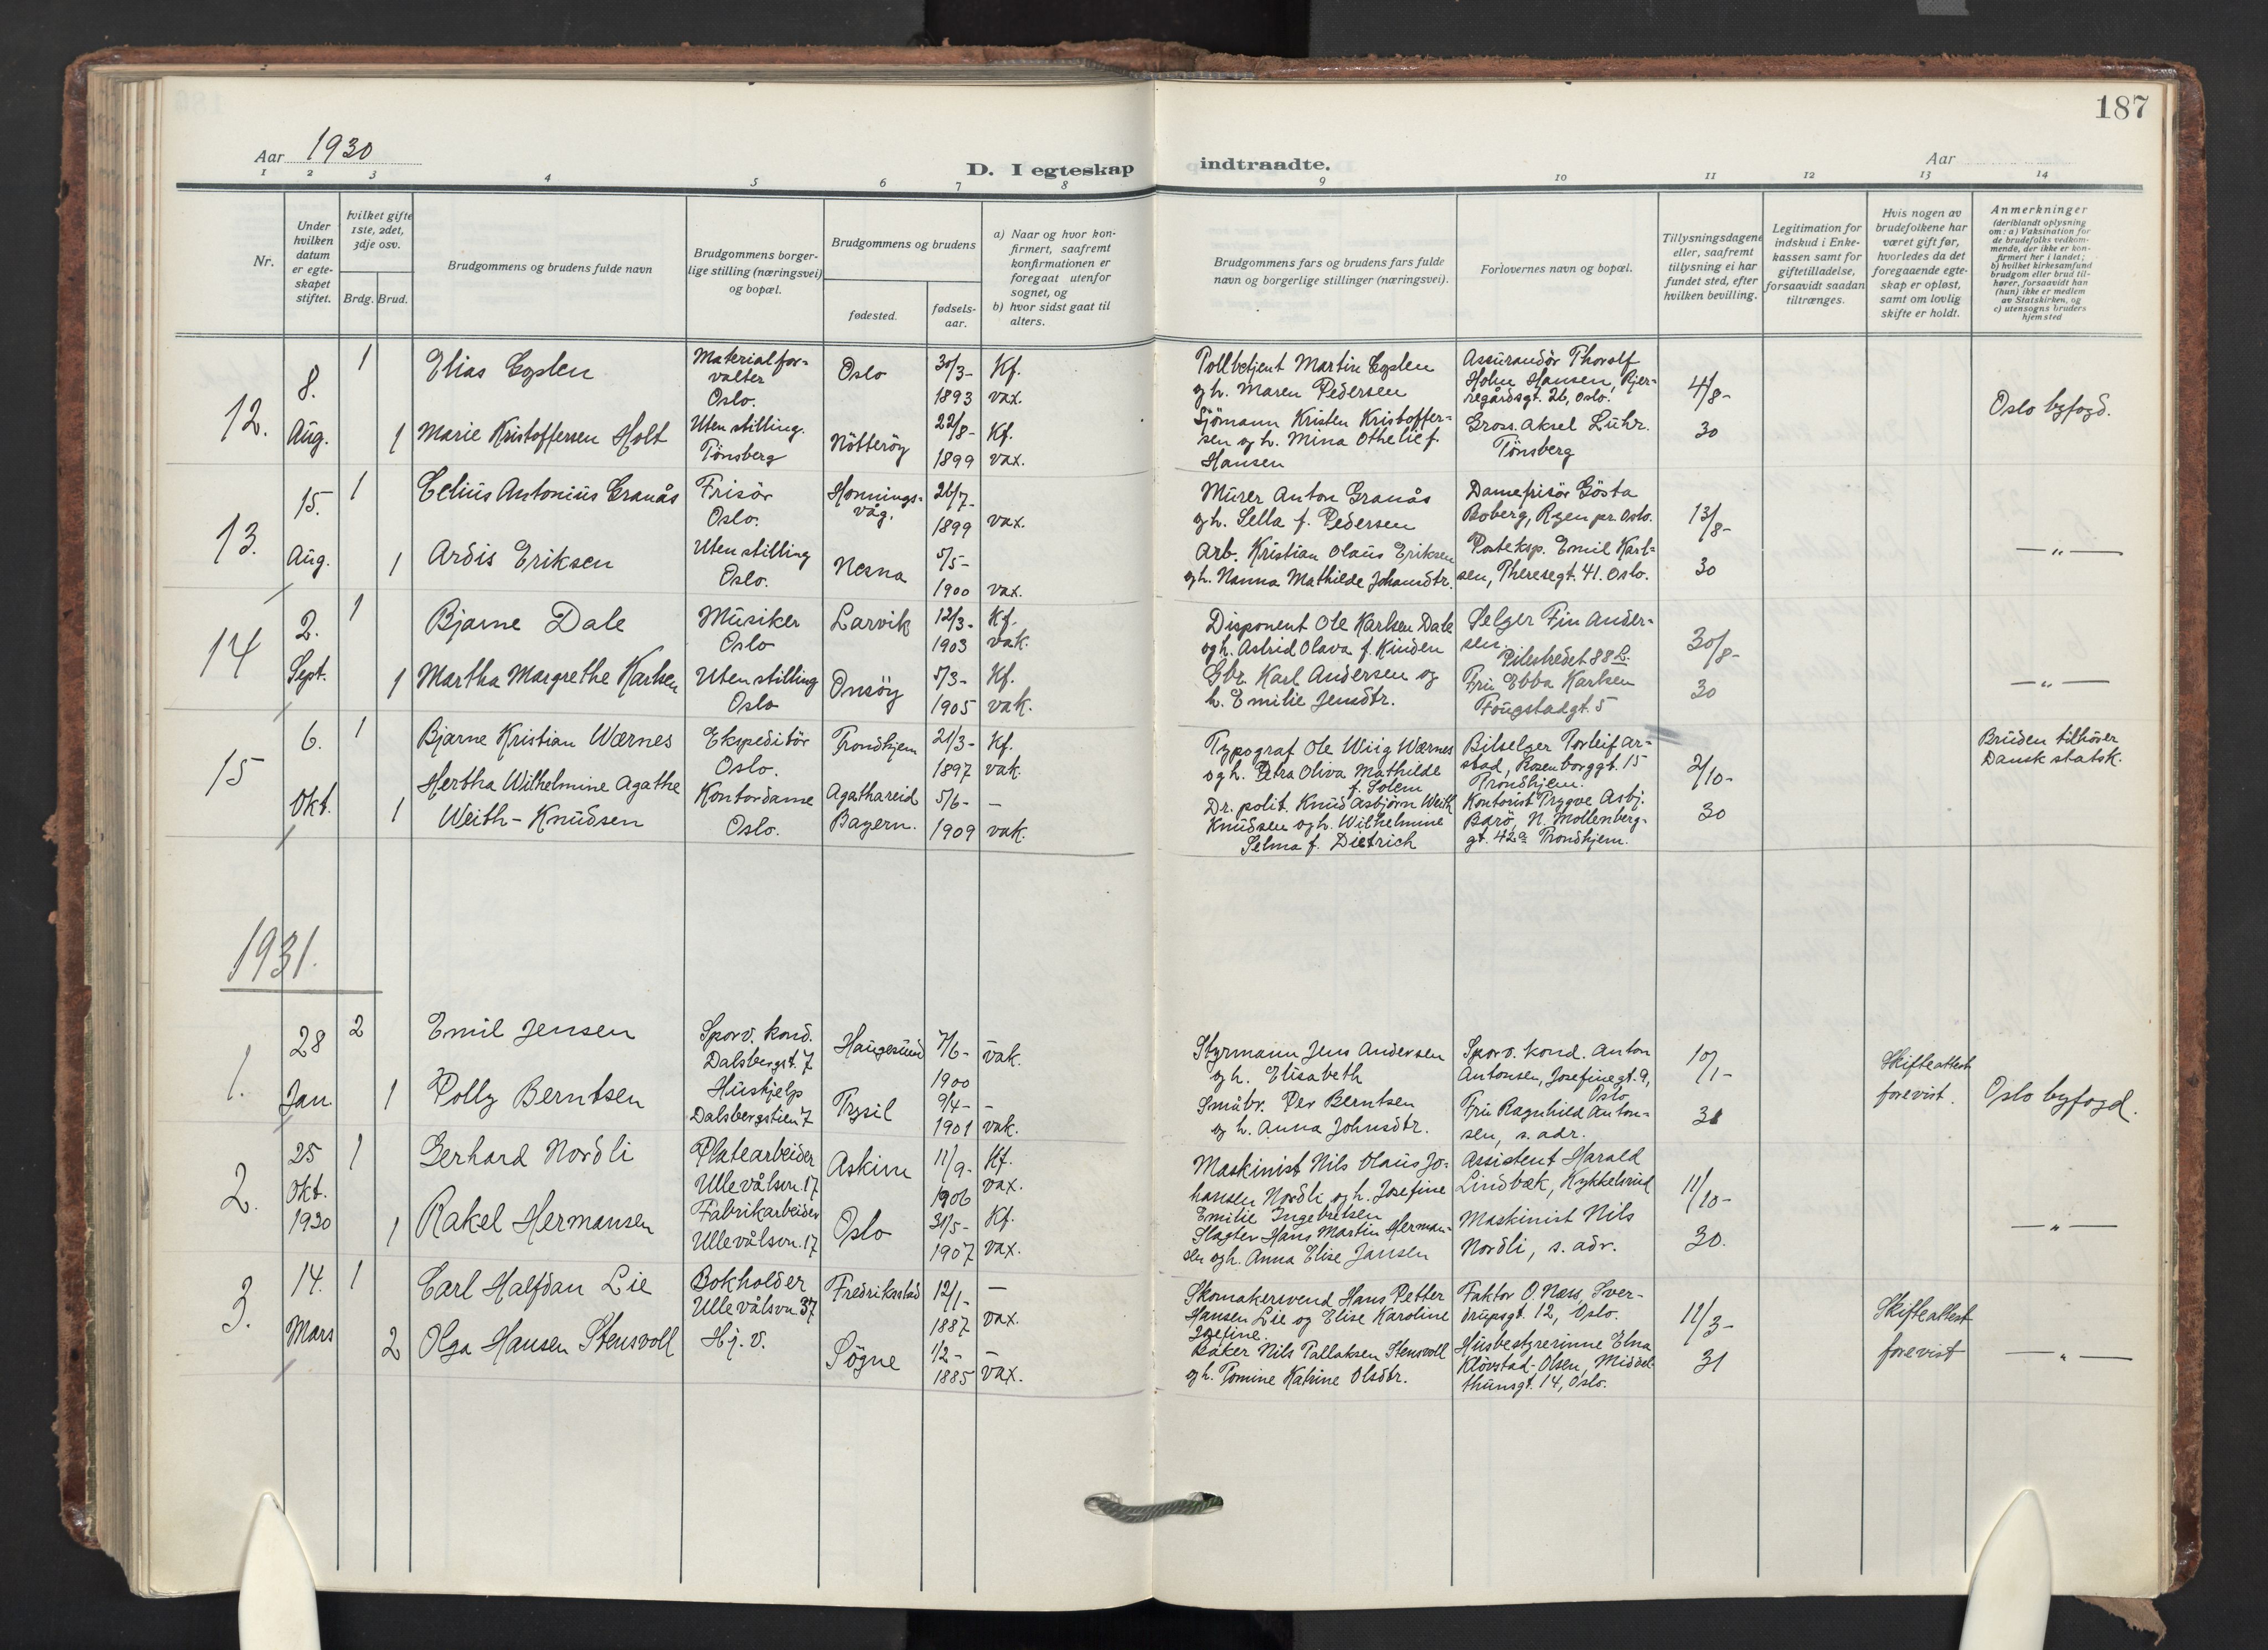 187
Aar 1930
D. I egteskap indtraadte.
Aar
1 2 3 4 5 6 7 8 9 10 11 12 13 14
Nr.
Under
hvilken
datum
er egte-
skapet
stiftet.
hvilket gifte
1ste, 2det,
3dje osv.
Brdg. Brud.
Brudgommens og brudens fulde navn
Brudgommens borger-
lige stilling (næringsvei)
og bopæl.
Brudgommens og brudens
fødested.
fødsels-
aar.
a) Naar og hvor kon-
firmert, saafremt
konfirmationen er
foregaat utenfor
sognet, og
b) hvor sidst gaat til
alters.
Brudgommens fars og brudens fars fulde
navn og borgerlige stillinger (næringsvei).
Forlovernes navn og bopæl.
Tillysningsdagene
eller, saafremt
tillysning ei har
fundet sted, efter
hvilken bevilling.
Legitimation for
indskud i Enke-
kassen samt for
giftetilladelse,
forsaavidt saadan
tiltrænges.
Hvis nogen av
brudefolkene har
været gift før,
hvorledes da det
foregaaende egte-
skap er opløst,
samt om lovlig
skifte er holdt.
Anmerkninger
(deriblandt oplysning
om: a) Vaksination for
de brudefolks vedkom-
mende, der ikke er kon-
firmert her i landet;
b) hvilket kirkesamfund
brudgom eller brud til-
hører, forsaavidt han
(hun) ikke er medlem
av Statskirken, og
c) utensogns bruders
hjemsted
12.
8.
Aug.
1
Elias Egslen
Materialfor-
valter
Oslo.
Oslo
30/3-
1893
Kf.
vax.
Tollbetjent Martin Egslen
og h. Maren Pedersen
Assurandör Thoralf
Holm Hansen, Bjer-
regårdsgt. 26, Oslo.
4/8-
30
Oslo byfogd.
1
Marie Kristoffersen Holt
Uten stilling.
Tönsberg
Nötteröy
22/8-
1899
Kf.
vax.
Sjömann Kristen Kristoffer-
sen og h. Mina Othelie f.
Hansen
Gross. Aksel Lühr.
Tönsberg
13.
15.
Aug.
1
Celius Antonius Granås
Frisör
Oslo.
Honnings-
våg.
26/7-
1899
vax.
Murer Anton Granås
og h. Sella f. Pedersen
Damefrisör Gösta
Boberg, Ryen pr. Oslo.
13/8-
30
— " —
1
Ardis Eriksen
Uten stilling
Oslo.
Nesna
5/5-
1900
vax.
Arb. Kristian Olaus Eriksen
og h. Nanna Mathilde Johansdtr.
Posteksp. Emil Karl-
sen, Theresegt. 41. Oslo.
14
2.
Sept.
1
Bjarne Dale
Musiker
Oslo
Larvik
12/3-
1903
Kf.
vak.
Disponent Ole Karlsen Dale
og h. Astrid Olava f. Kinden
Selger Fin Ander-
sen.
Pilestredet 88 b.
30/8-
30
— " —
1
Martha Margrethe Karlsen
Uten stilling
Oslo
Onsöy
5/3-
1905
Kf.
vak.
Gbr. Karl Andersen og
h. Emilie Jensdtr.
Fru Ebba Karlsen
Fougstadgt. 5
15
6.
Okt.
1
Bjarne Kristian Wærnes
Ekspeditör
Oslo.
Trondhjem
21/3-
1897
Kf.
vak.
Typograf Ole Wiig Wærnes
og h. Petra Oliva Mathilde
f. Solem
Bilselger Torleif Ar-
stad, Rosenborggt. 15
Trondhjem.
2/10-
30
Bruden tilhører
Dansk statsk.
1
Hertha Wilhelmine Agathe
Weith-Knudsen
Kontordame
Oslo.
Agathareid
Bayern.
5/6-
1909
—
vak.
Dr. polit. Knud Asbjörn Weith
Knudsen og h. Wilhelmine
Selma f. Dietrich
Kontorist Trygve Asbj.
Barö, N. Mollenberg-
gt. 42a Trondhjem.
1931.
1.
28
Jan.
2
Emil Jensen
Sporv. kond.
Dalsbergst. 7
Haugesund
7/6-
1900
—
vak.
Styrmann Jens Andersen
og h. Elisabeth
Sporv. kond. Anton
Antonsen, Josefinegt. 9,
Oslo
10/1-
31
Skifteattest
forevist.
Oslo byfogd.
1
Polly Berntsen
Hushjelp
Dalsbergstien 7
Trysil
9/4-
1901
-
vak.
Småbr. Per Berntsen
og h. Anna Johnsdtr.
Fru Ragnhild Anton-
sen, s. adr.
2.
25
Okt.
1930
1
Gerhard Nordli
Platearbeider
Ullevålsvn. 17
Askim
11/9-
1906
Kf.
vax.
Maskinist Nils Olaus Jo-
hansen Nordli og h. Josefine
Emilie Ingebretsen
Assistent Harald
Lindbæk, Kykkelsrud
11/10-
30.
— " —
1
Rakel Hermansen
Fabrikarbeider
Ullevålsvn. 17
Oslo
31/5-
1907
Kf.
vax.
Slagter Hans Martin Herman-
sen og h. Anna Elise Jansen
Maskinist Nils
Nordli, s. adr.
3.
14.
Mars
1
Carl Halfdan Lie
Bokholder
Ullevålsvn 37
Fredriksstad
12/1-
1887
—
vax.
Skomakersvend Hans Petter
Hansen Lie og Elise Karoline
Josefine.
Faktor O. Næss, Sver-
drupsgt. 12, Oslo.
11/3-
31
Skifteattest
forevist
— " —
2
Olga Hansen Stensvoll
Hj. v.
Sögne
1/2-
1885
—
vax.
Baker Nils Tallaksen Stensvoll
og h. Tomine Katrine Olsdtr.
Husbestyrerinne Elna
Klövstad-Olsen, Middel-
thunsgt. 14, Oslo.